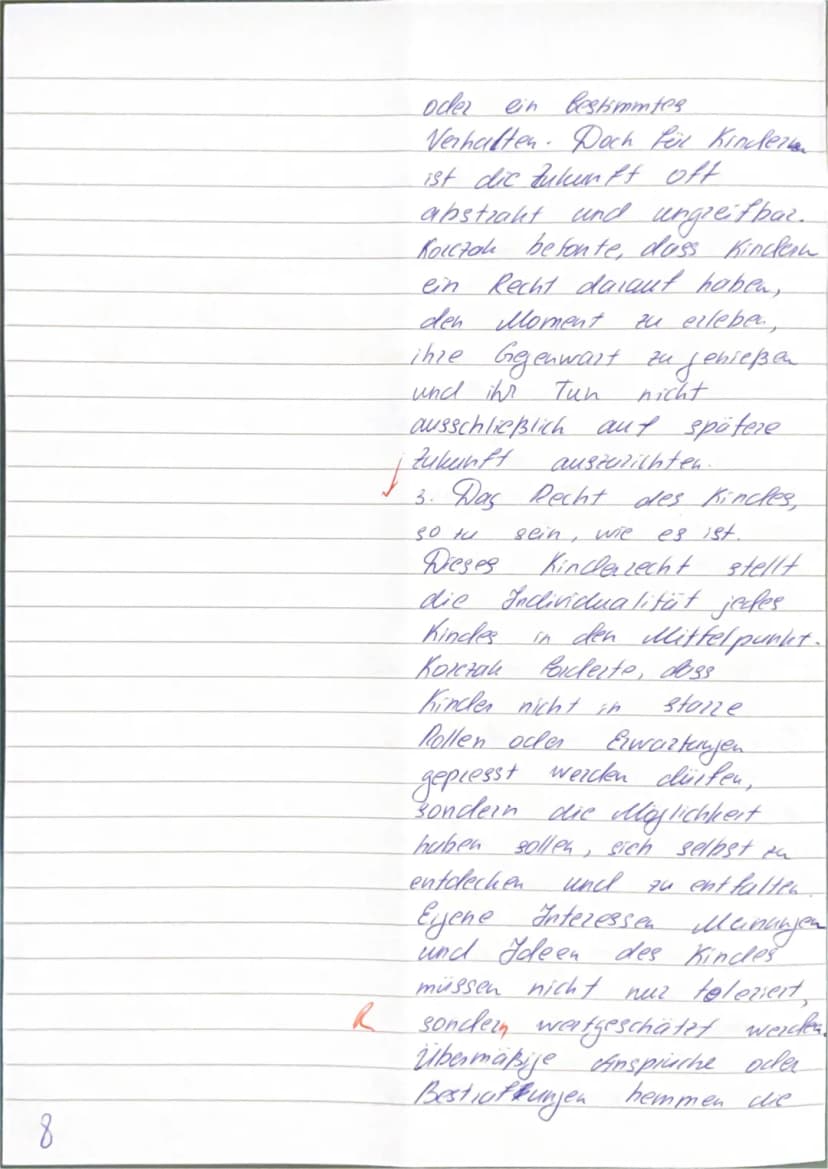 oder ein bestimmtes
Verhalten. Doch für Kindern
ist die Zukunft oft
abstrakt und ungreifbar.
Korczak betonte, dass Kindern
ein Recht darauf haben,
den Moment zu erleben,
ihre Gegenwart zu genießen
und ihr Tun nicht
ausschließlich auf spätere
Zukunft auszurichten.
3. Das Recht des Kindes,
so zu sein, wie es ist.
Dieses Kinderrecht stellt
die Individualität jedes
Kindes in den Mittelpunkt.
Korczak forderte, dass
Kinder nicht in starre
Rollen oder Erwartungen
gepresst werden dürfen,
sondern die Möglichkeit
haben sollen, sich selbst zu
entdecken und zu entfalten.
Eigene Interessen Meinungen
und Ideen des Kindes
müssen nicht nur toleriert,
R sondern wertgeschätzt werden.
Übermäßige Ansprüche oder
Bestraffungen hemmen die
8